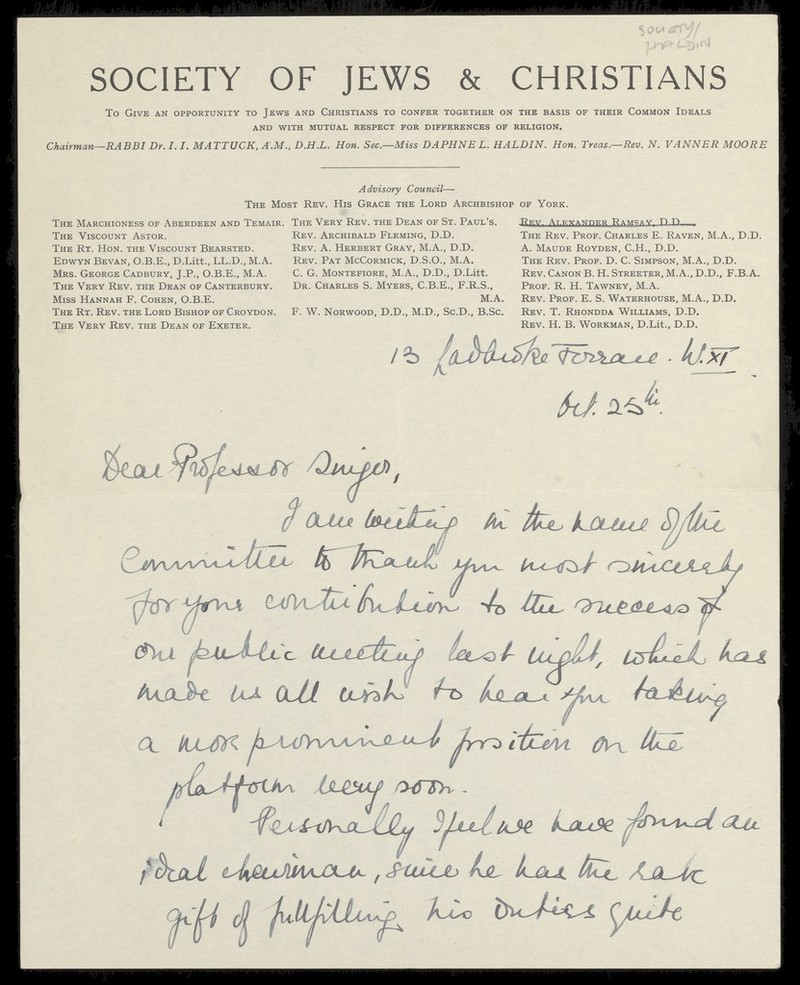 SOCIETY/
HALDIN
SOCIETY OF JEWS & CHRISTIANS
To Give an opportunity to Jews and Christians to confer together on the basis of their Common Ideals
and with mutual respect for differences of religion.
Chairman—RABBI Dr. I. I. MATTUCK, A.M., D.H.L. Hon. Sec.—Miss DAPHNE L. HALDIN. Hon. Treas.—Rev. N. VANNER MOORE
Advisory Council—
The Most Rev. His Grace the Lord Archbishop of York.
The Marchioness of Aberdeen and Temair.
The Viscount Astor.
The Rt. Hon. the Viscount Bearsted.
Edwyn Bevan, O.B.E., D.Litt., LL.D., M.A.
Mrs. George Cadbury, J.P., O.B.E., M.A.
The Very Rev. the Dean of Canterbury.
Miss Hannah F. Cohen, O.B.E.
The Rt. Rev. the Lord Bishop of Croydon.
The Very Rev. the Dean of Exeter.
The Very Rev. the Dean of St. Paul's.
Rev. Archibald Fleming, D.D.
Rev. A. Herbert Gray, M.A., D.D.
Rev. Pat McCormick, D.S.O., M.A.
C. G. Montefiore, M.A., D.D., D.Litt.
Dr. Charles S. Myers, C.B.E., F.R.S.,
M.A.
F. W. Norwood, D.D., M.D., Sc.D., B.Sc.
Rev. Alexander Ramsay, D.D.
The Rev. Prof. Charles E. Raven, M.A., D.D.
A. Maude Royden, C.H., D.D.
The Rev. Prof. D. C. Simpson, M.A., D.D.
Rev. Canon B. H. Streeter, M.A., D.D., F.B.A.
Prof. R. H. Tawney, M.A.
Rev. Prof. E. S. Waterhouse, M.A., D.D.
Rev. T. Rhondda Williams, D.D.
Rev. H. B. Workman, D.Lit., D.D.
13 Ladbroke Terrace. W.XI
Oct. 25th.
Dear Professor Singer,
I am writing in the name of the
Committee to thank you most sincerely
for your contribution to the success of
our public meeting last night, which has
made us all wish to hear you taking
a more prominent position on the
platform very soon.
Personally I feel we have found an
ideal chairman, since he has the rare
gift of fullfilling his duties quite